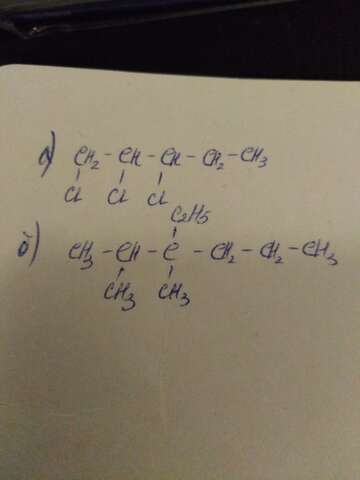 а) CH2 - CH - CH - CH2 - CH3
Cl Cl Cl
C2H5
б) CH3 - CH - C - CH2 - CH2 - CH3
CH3 CH3